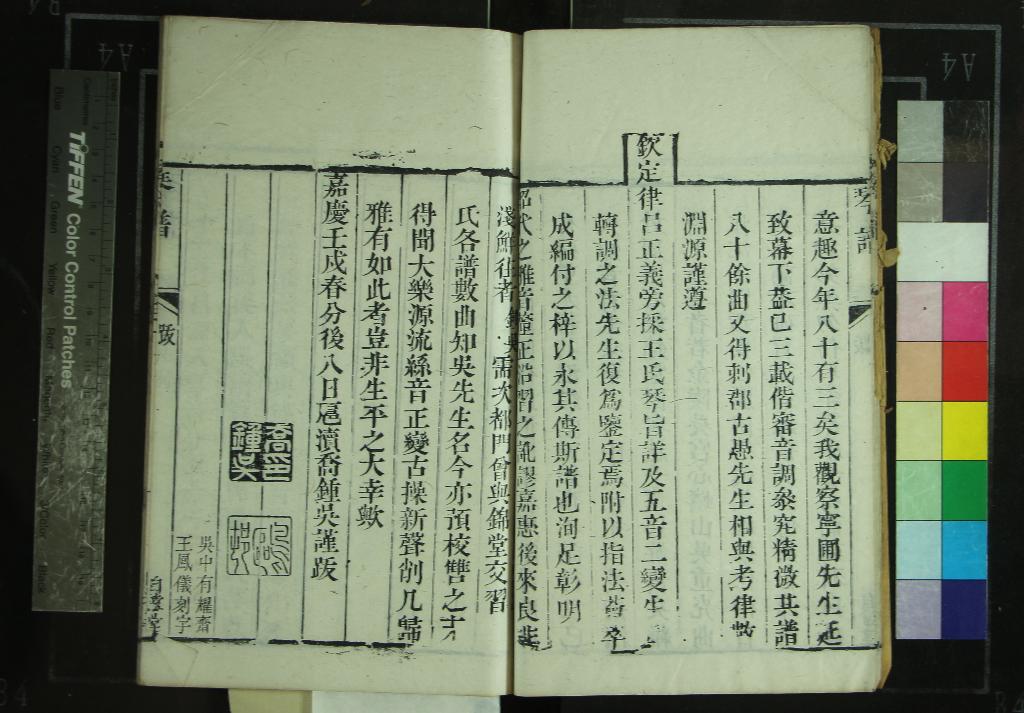 意趣今年八十有三矣我觀察寧圃先生延
致幕下葢已三載偕審音調叅究精微其譜
八十餘曲又得刺郡古愚先生相與考律數
淵源謹遵
欽定律呂正義旁採王氏琴旨詳及五音二變生
轉調之法先生復爲鑒定焉附以指法薈萃
成編付之梓以永其傳斯譜也洵足彰明
昭代之雅音釐正沿習之訛謬嘉惠後來良非
淺鮮往者鍾吳需次都門曾與錦堂交習
氏各譜數曲知吳先生名今亦預校讐之末
得聞大樂源流絲音正變古操新聲削凡歸
雅有如此者豈非生平之大幸歟
嘉慶壬戌春分後八日扈瀆喬鍾吳謹跋
喬印
鍾吳
吳中有耀齋
王鳳儀刻字
跋
自遠堂
TIFFEN Color Control Patches
Blue
Cyan
Green
Yellow
Red
Black
A4
A4